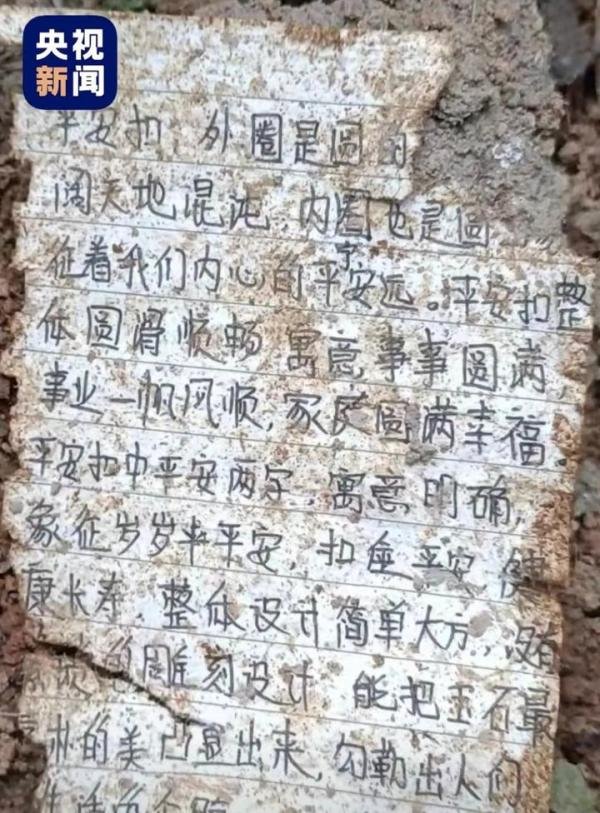 央视
新闻
平安扣 外圈是圆
阔天地混沌,内圈也是圆
征着我们内心的平宁安远。平安扣整
体圆滑顺畅 寓意事事圆满,
事业一帆风顺,家庭圆满幸福。
平安扣中平安两字,寓意明确,
象征岁岁平安,扣 平安 健
康长寿,整体设计简单大方,没有
雕刻设计 能把玉石最
朴的美凸显出来,勾勒出人们